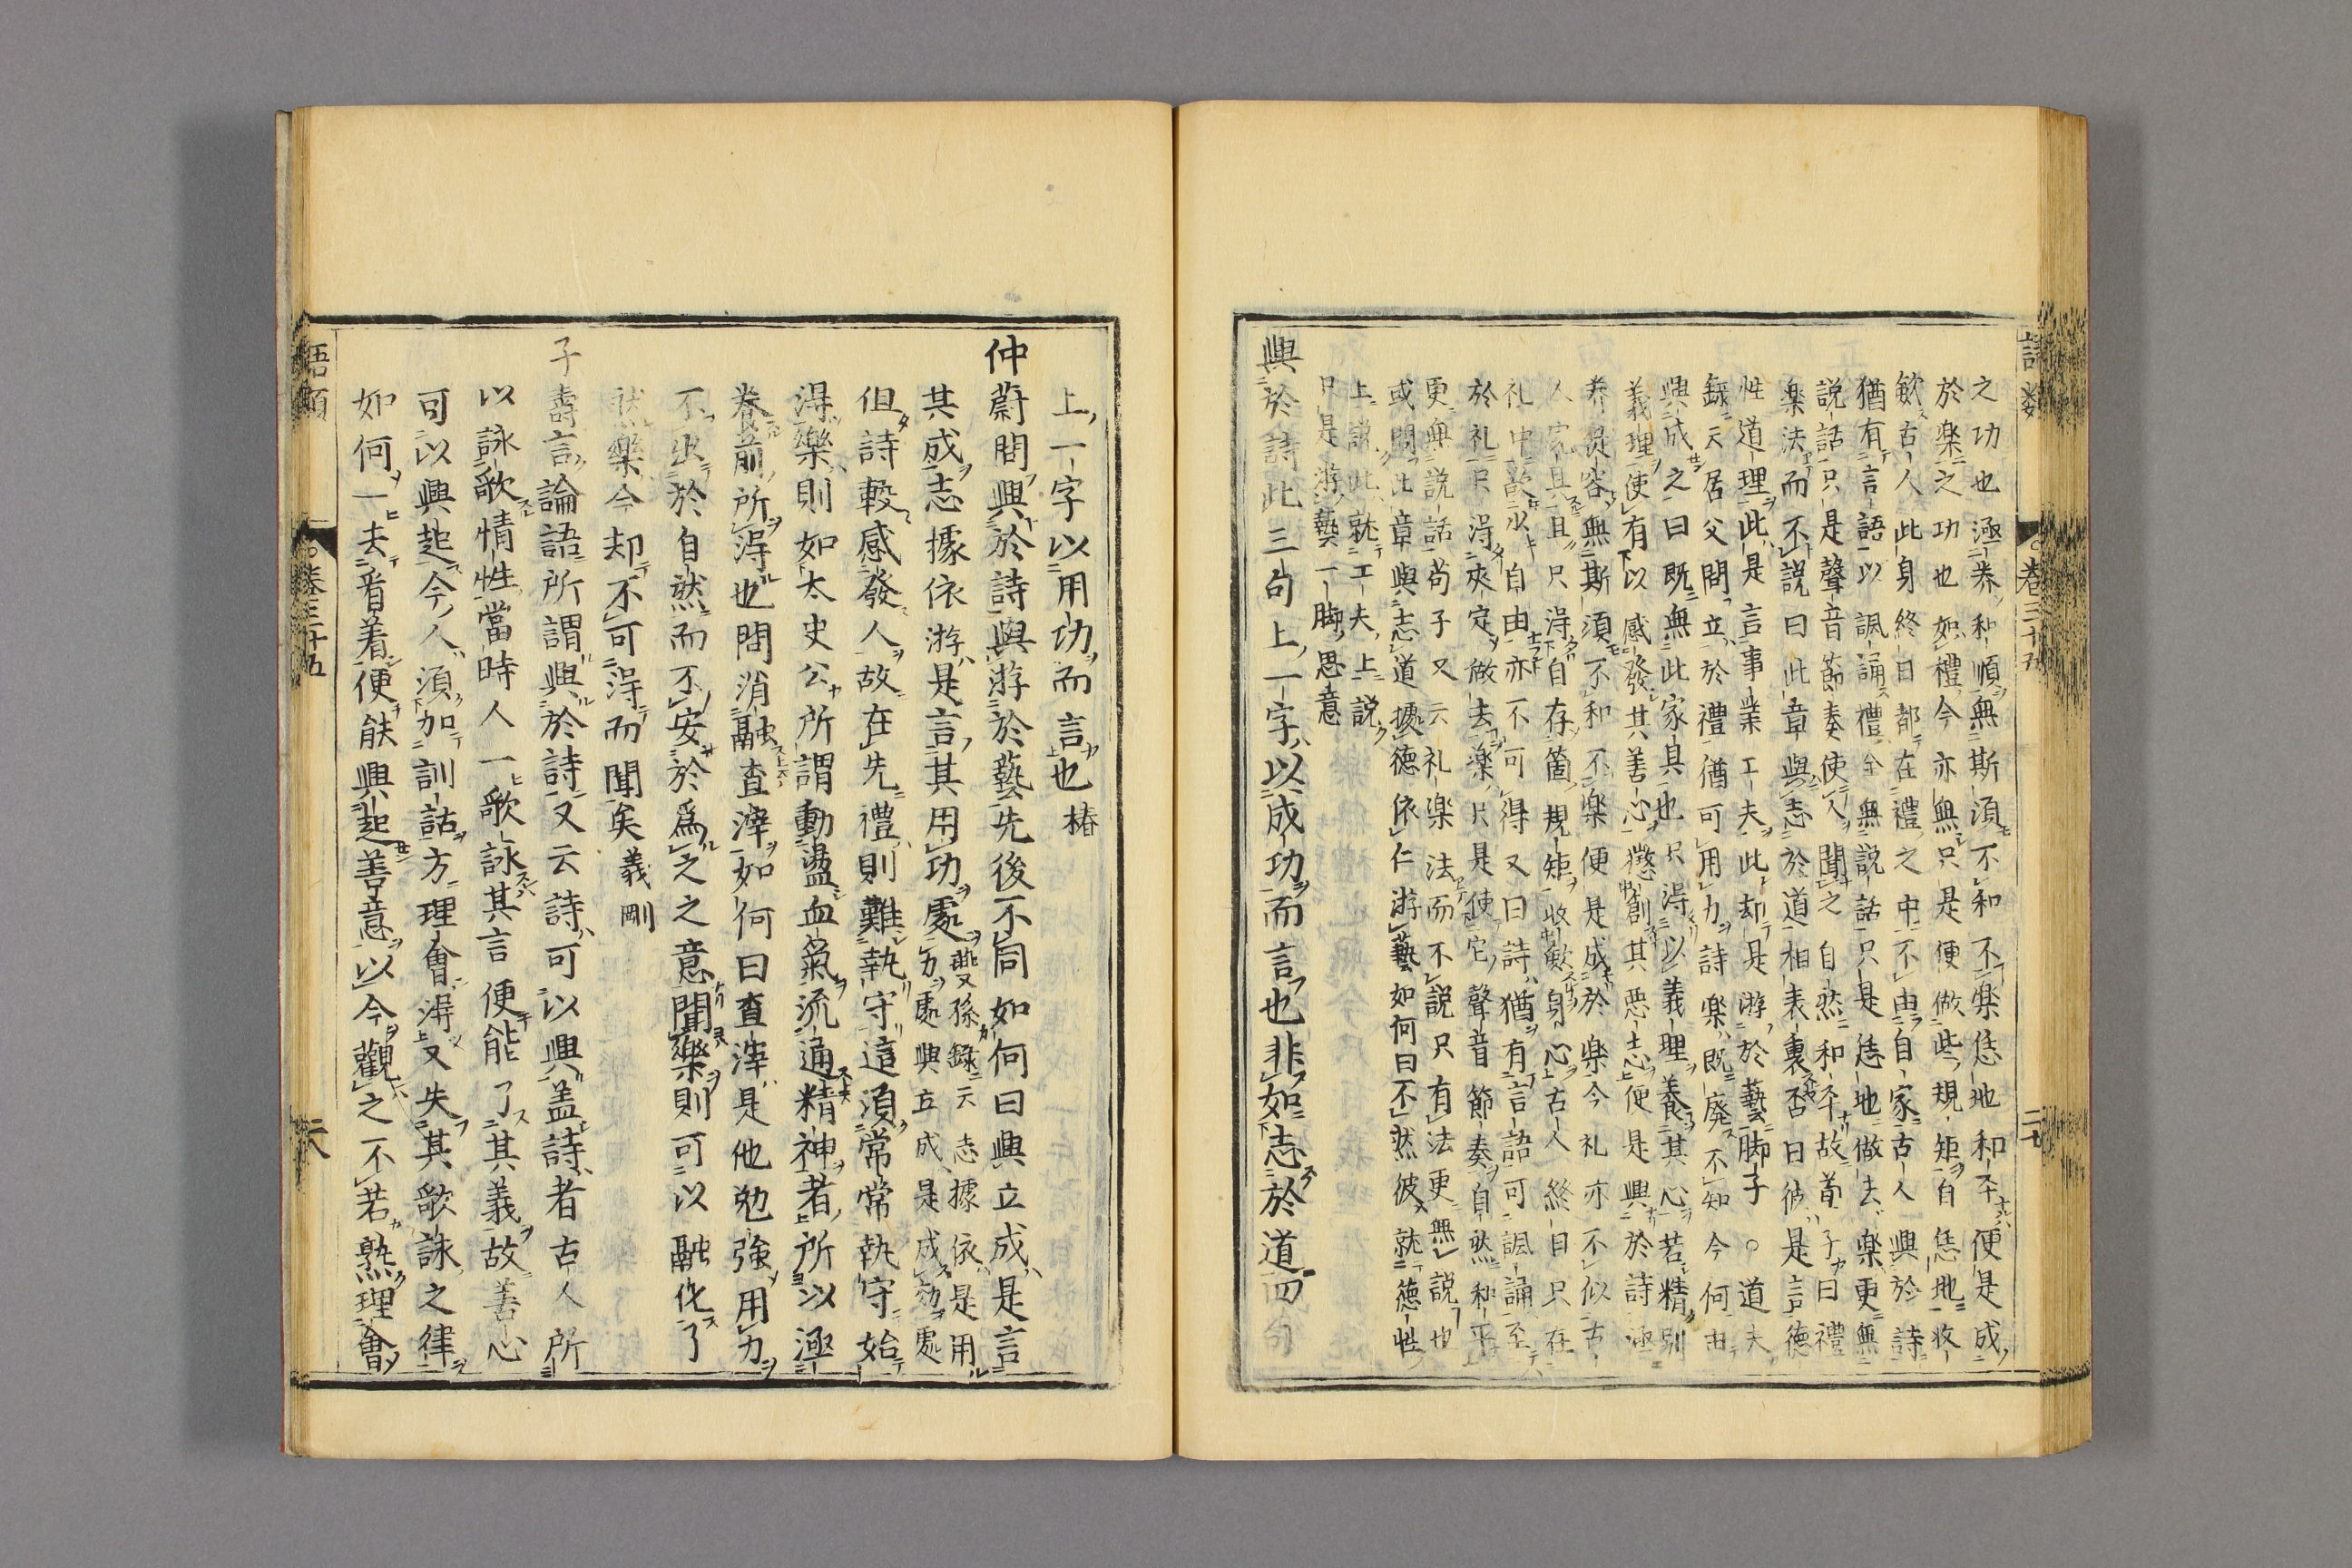 語類
卷三十五
二十七
之功也涵養和順無斯湏不和不楽恁地和平便是成
於楽之功也如禮今亦無只是便做此規矩自恁地收
斂古人此身終日都在禮之中不由自家古人興於詩
猶有言語以諷誦禮全無説話只是恁地做去楽更無
説話只是聲音節奏使人聞之自然和平故荀子曰禮
楽法而不説曰此章與志於道相表裏否曰彼是言德
性道理此是言事業工夫此却是游於藝脚子○道夫
録云居父問立於禮猶可用力詩楽既廢不知今何由
興成之曰既無此家具也只得以義理養其心若精别
義理使有以感發其善心懲創其惡志便是興於詩涵
養從容無斯湏不和不楽便是成於楽今礼亦不似古
人完具且只得自存箇規矩收斂身心古人終日只在
礼中欲少自由亦不可得又曰詩猶有言語可諷誦至
於礼只得夾定做去楽只是使它聲音節奏自然和平
更無説話荀子又云礼楽法而不説只有法更無説也
或問此章與志道據德依仁游藝如何曰不然彼就德性
上説此就工夫上説
只是游藝一脚思意
興於詩此三句上一字以成功而言也非如志於道四句
上一字以用功而言也椿
仲蔚問興於詩與游於藝先後不同如何曰興立成是言
其成志據依游是言其用功處夔孫録云志據依是用
力處興立成是成効處
但詩較感發人故在先禮則難執守這湏常常執守始
得樂則如太史公所謂動盪血氣流通精神者所以涵
養前所得也問消融查滓如何曰查滓是他勉強用力
不出於自然而不安於爲之之意聞樂則可以融化了
然樂今却不可得而聞矣義剛
子壽言論語所謂興於詩又云詩可以興盖詩者古人所
以詠歌情性當時人一歌詠其言便能了其義故善心
可以興起今人湏加訓詁方理會得又失其歌詠之律
如何一去看着便能興起善意以今觀之不若熟理會
語類
卷三十五
二十八